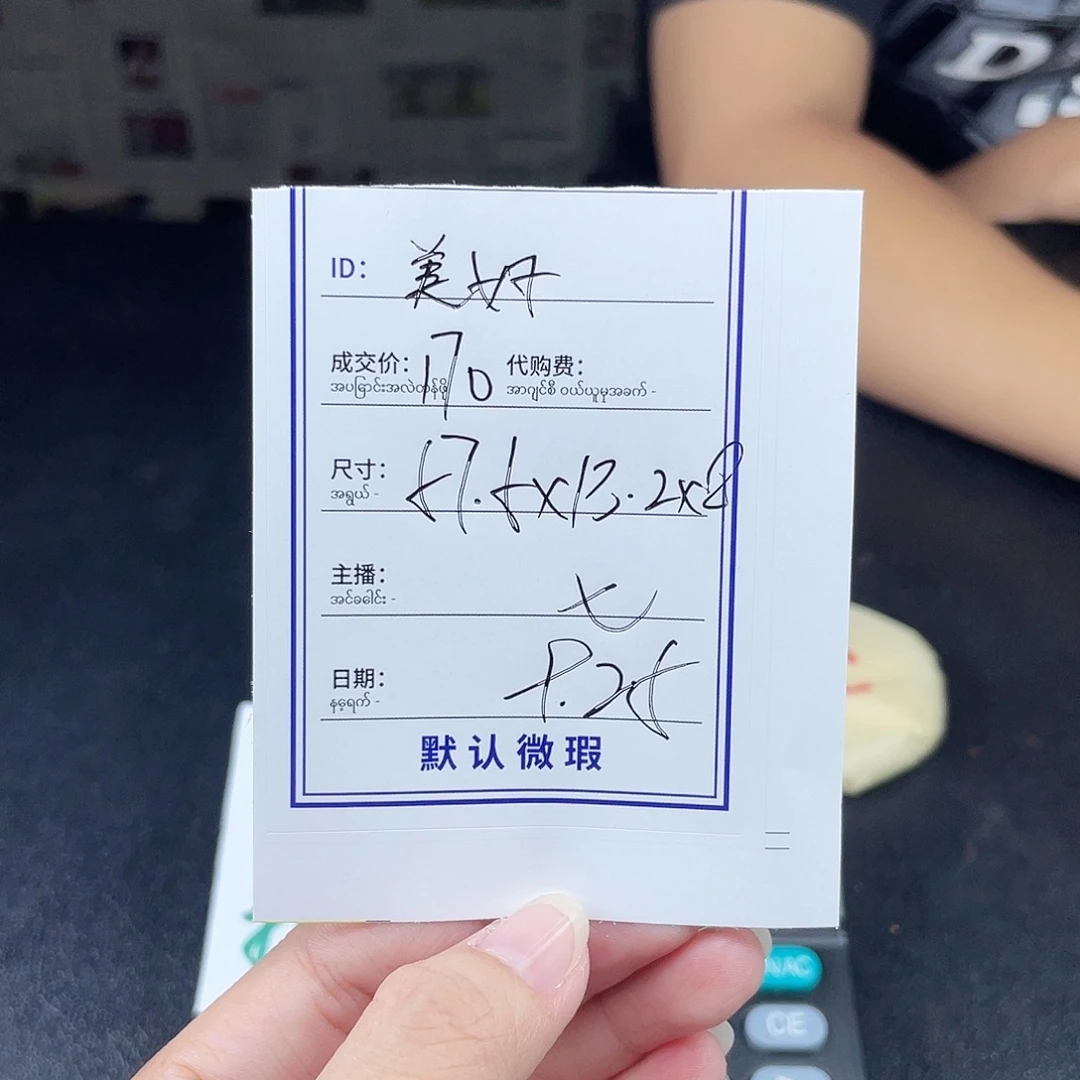 ID: 美好
成交价: 170 代购费:
အပြောင်းအလဲတန်ဖိုး အာဂျင်စီ ဝယ်ယူမှုအခက် -
尺寸: 57.5x13.2x8
အရွယ် -
主播: 七
အင်ခေါင်း -
日期:
နေ့ရက် -
默认微瑕
CE